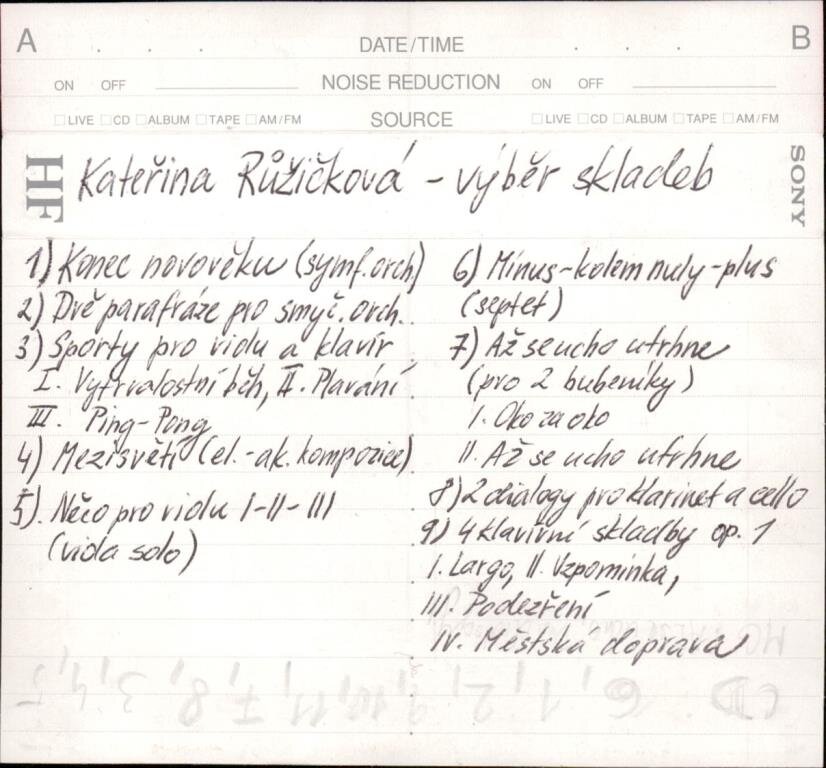 A DATE/TIME B
ON OFF NOISE REDUCTION ON OFF
LIVE CD ALBUM TAPE AM/FM SOURCE LIVE CD ALBUM TAPE AM/FM
HF
SONY
Kateřina Růžičková - výběr skladeb
1) Konec novověku (symf. orch)
2) Dvě parafráze pro smyč. orch.
3) Sporty pro violu a klavír
I. Vytrvalostní běh, II. Plavání
III. Ping-Pong
4) Mezisvětí (el.-ak. kompozice)
5) Něco pro violu I-II-III
(viola solo)
6) Mínus-kolem nuly-plus
(septet)
7) Až se ucho utrhne
(pro 2 bubeníky)
I. Oko za oko
II. Až se ucho utrhne
8) 2 dialogy pro klarinet a cello
9) 4 klavírní skladby op. 1
I. Largo, II. Vzpomínka,
III. Podezření
IV. Městská doprava
CD 6, 1, 2, 9, 10, 11, 7, 8, 3, 4, 5